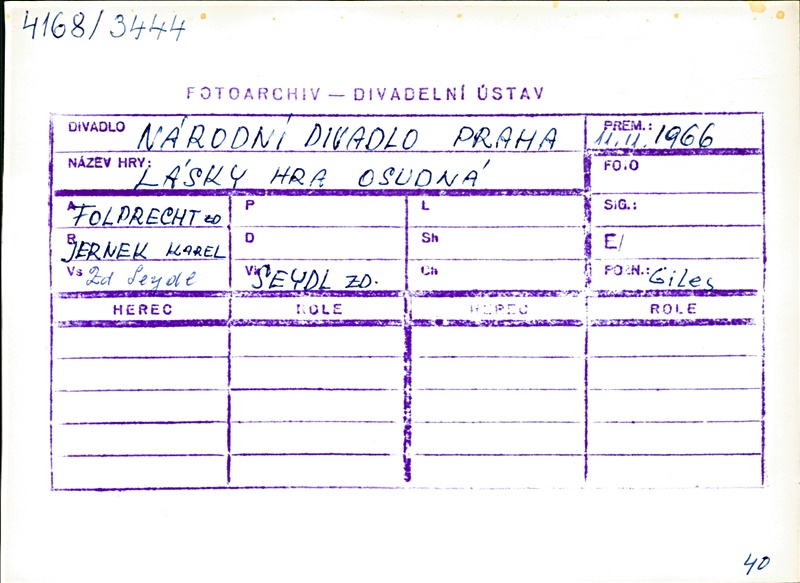 4168/3444
FOTOARCHIV — DIVADELNÍ ÚSTAV
DIVADLO NÁRODNÍ DIVADLO PRAHA PREM.: 11.11.1966
NÁZEV HRY: LÁSKY HRA OSUDNÁ FOTO
A FOLPRECHT ZD P L SIG.:
R JERNEK KAREL D Sh E/
Vs Zd Seydl Vk SEYDL ZD. Ch POZN.: Giles
HEREC ROLE HEREC ROLE
40